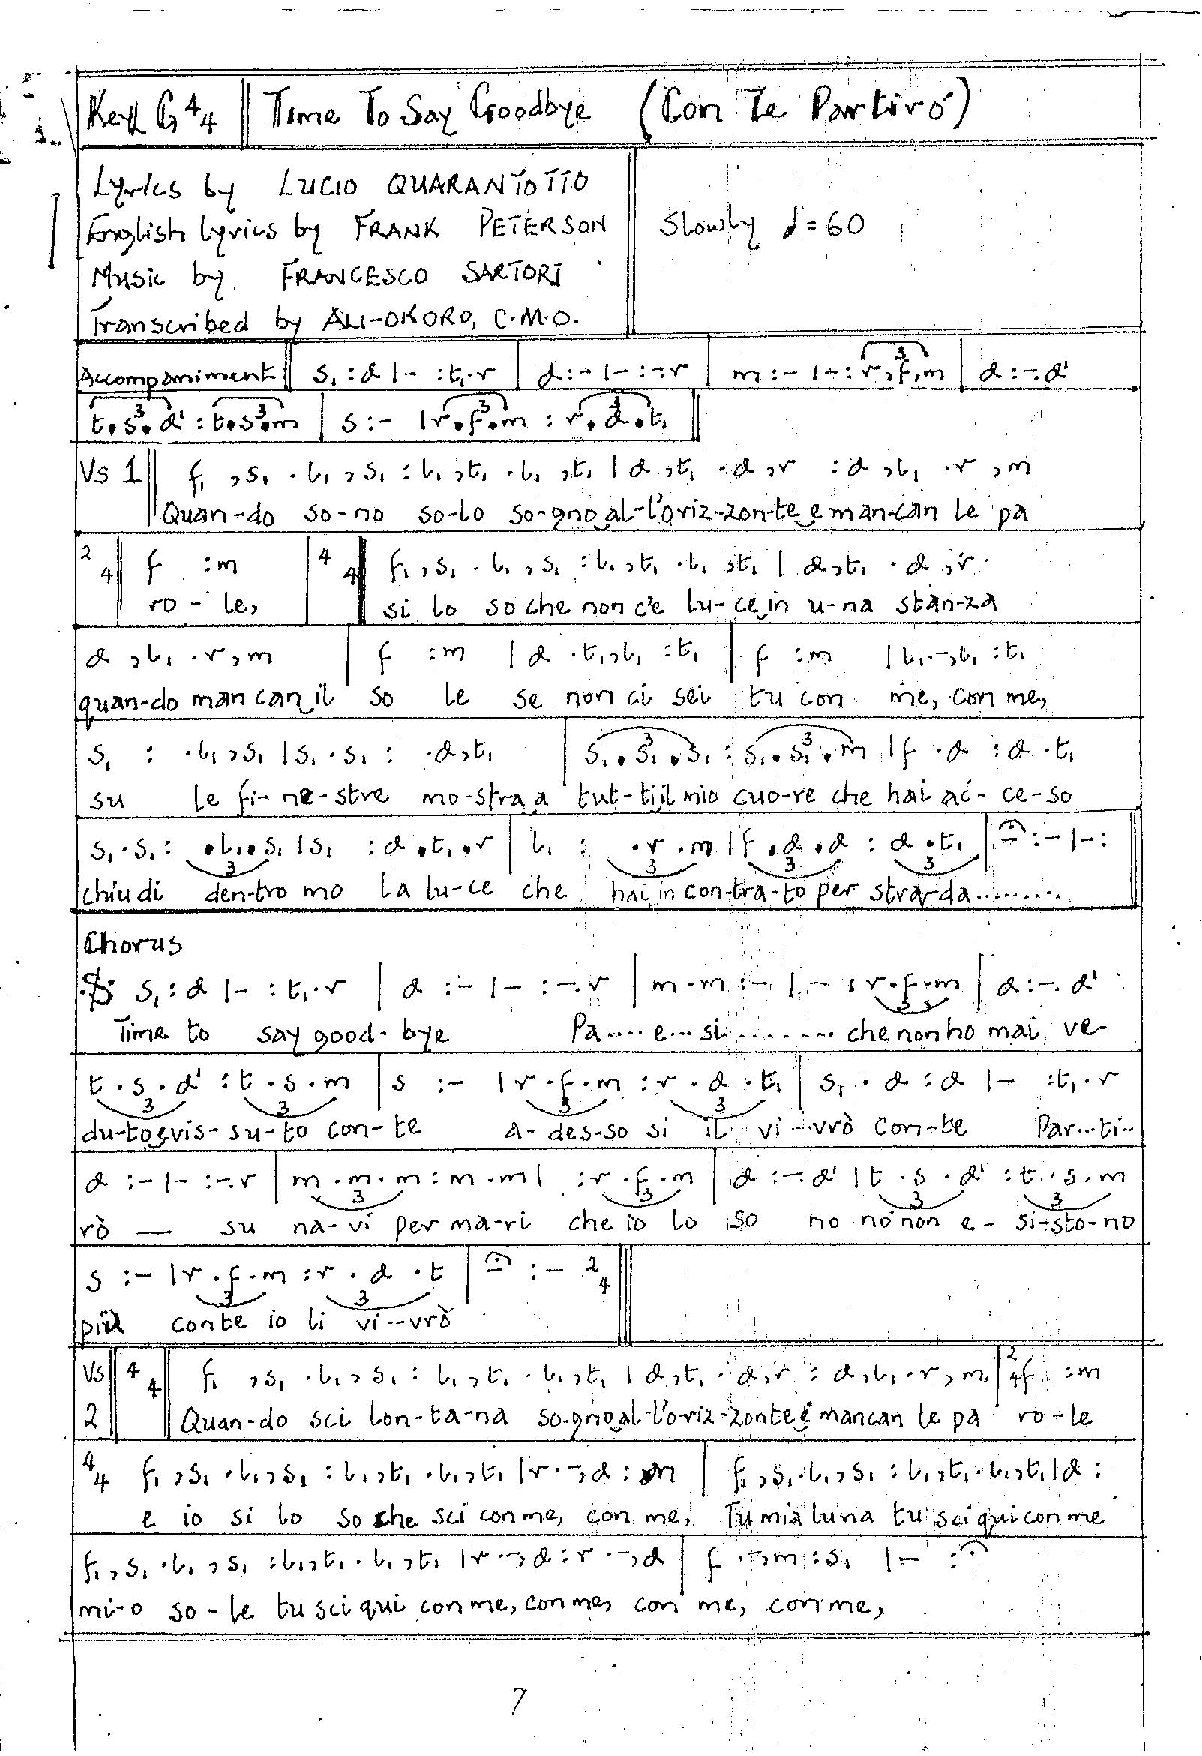 Key G 4/4 Time To Say Goodbye (Con Te Partiró)
Lyrics by LUCIO QUARANTOTTO
English Lyrics by FRANK PETERSON
Music by FRANCESCO SARTORI
Transcribed by ALI-OKORO, C.M.O.
Slowly d=60
Accompaniment s₁ :d |- :t₁.r | d :- |- :-.r | m :- |- : r.f.m | d :-.d'
t.s.d' : t.s.m | s :- |r.f.m : r.d.t₁
Vs 1 f₁ ,s₁ .l₁ ,s₁ : l₁ ,t₁ .l₁ ,t₁ | d ,t₁ .d ,r :d ,l₁ .r ,m
Quan-do so-no so-lo so-gno al-l'oriz-zon-te e man-can le pa
2/4 f :m 4/4 f₁ ,s₁ .l₁ ,s₁ : l₁ ,t₁ .l₁ ,t₁ | d ,t₁ .d ,r
ro - le, si lo so che non c'e lu-ce in u-na stan-za
d ,l₁ .r ,m | f :m | d .t₁,l₁ :t₁ | f :m |l₁.-,l₁ :t₁
quan-do man can il so le se non ci sei tu con me, con me,
s₁ : .l₁,s₁ |s₁ .s₁ : .d,t₁ | s₁.s₁.s₁ : s₁.s₁.m |f .d :d .t₁
su le fi-ne-stre mo-stra a tut-ti il mio cuo-re che hai ac-ce-so
s₁.s₁ : .l₁.s₁ |s₁ :d.t₁.r | l₁ : .r.m |f.d.d : d.t₁ | - :- |- :
chiu di den-tro mo la lu-ce che hai in con-tra-to per stra-da..........
Chorus
s₁ :d |- :t₁.r | d :- |- :-.r | m.m :- |- : r.f.m | d :-. d'
Time to say good-bye Pa.... e... si.......... che non ho mai ve-
t.s.d' : t.s.m | s :- |r.f.m : r.d.t₁ | s₁ .d :d |- :t₁.r
du-to e vis-su-to con-te A-des-so si il vi--vrò con-te Par--ti--
d :- |- :-.r | m.m.m : m.m | :r.f.m | d :-.d' |t.s.d' : t.s.m
rò — su na-vi per ma-ri che io lo so no no non e-si-sto-no
s :- |r.f.m :r.d.t | - :- 2/4
più con te io li vi--vrò
Vs 2 4/4 f₁ ,s₁ .l₁ ,s₁ : l₁ ,t₁ .l₁ ,t₁ | d ,t₁ .d ,r : d ,l₁ .r ,m | 2/4 f :m
Quan-do sci lon-ta-na so-gno al-l'oriz-zonte e mancan le pa ro-le
4/4 f₁ ,s₁ .l₁ ,s₁ : l₁ ,t₁ .l₁ ,t₁ |r.-,d : m | f₁ ,s₁ .l₁ ,s₁ : l₁ ,t₁ .l₁ ,t₁ |d :
e io si lo so che sci con me, con me, Tu mia luna tu sci qui con me
f₁ ,s₁ .l₁ ,s₁ :l₁ ,t₁ .l₁ ,t₁ |r.-,d : r.-,d | f.-,m :s₁ |- :
mi-o so-le tu sci qui con me, con me, con me, con me,
7